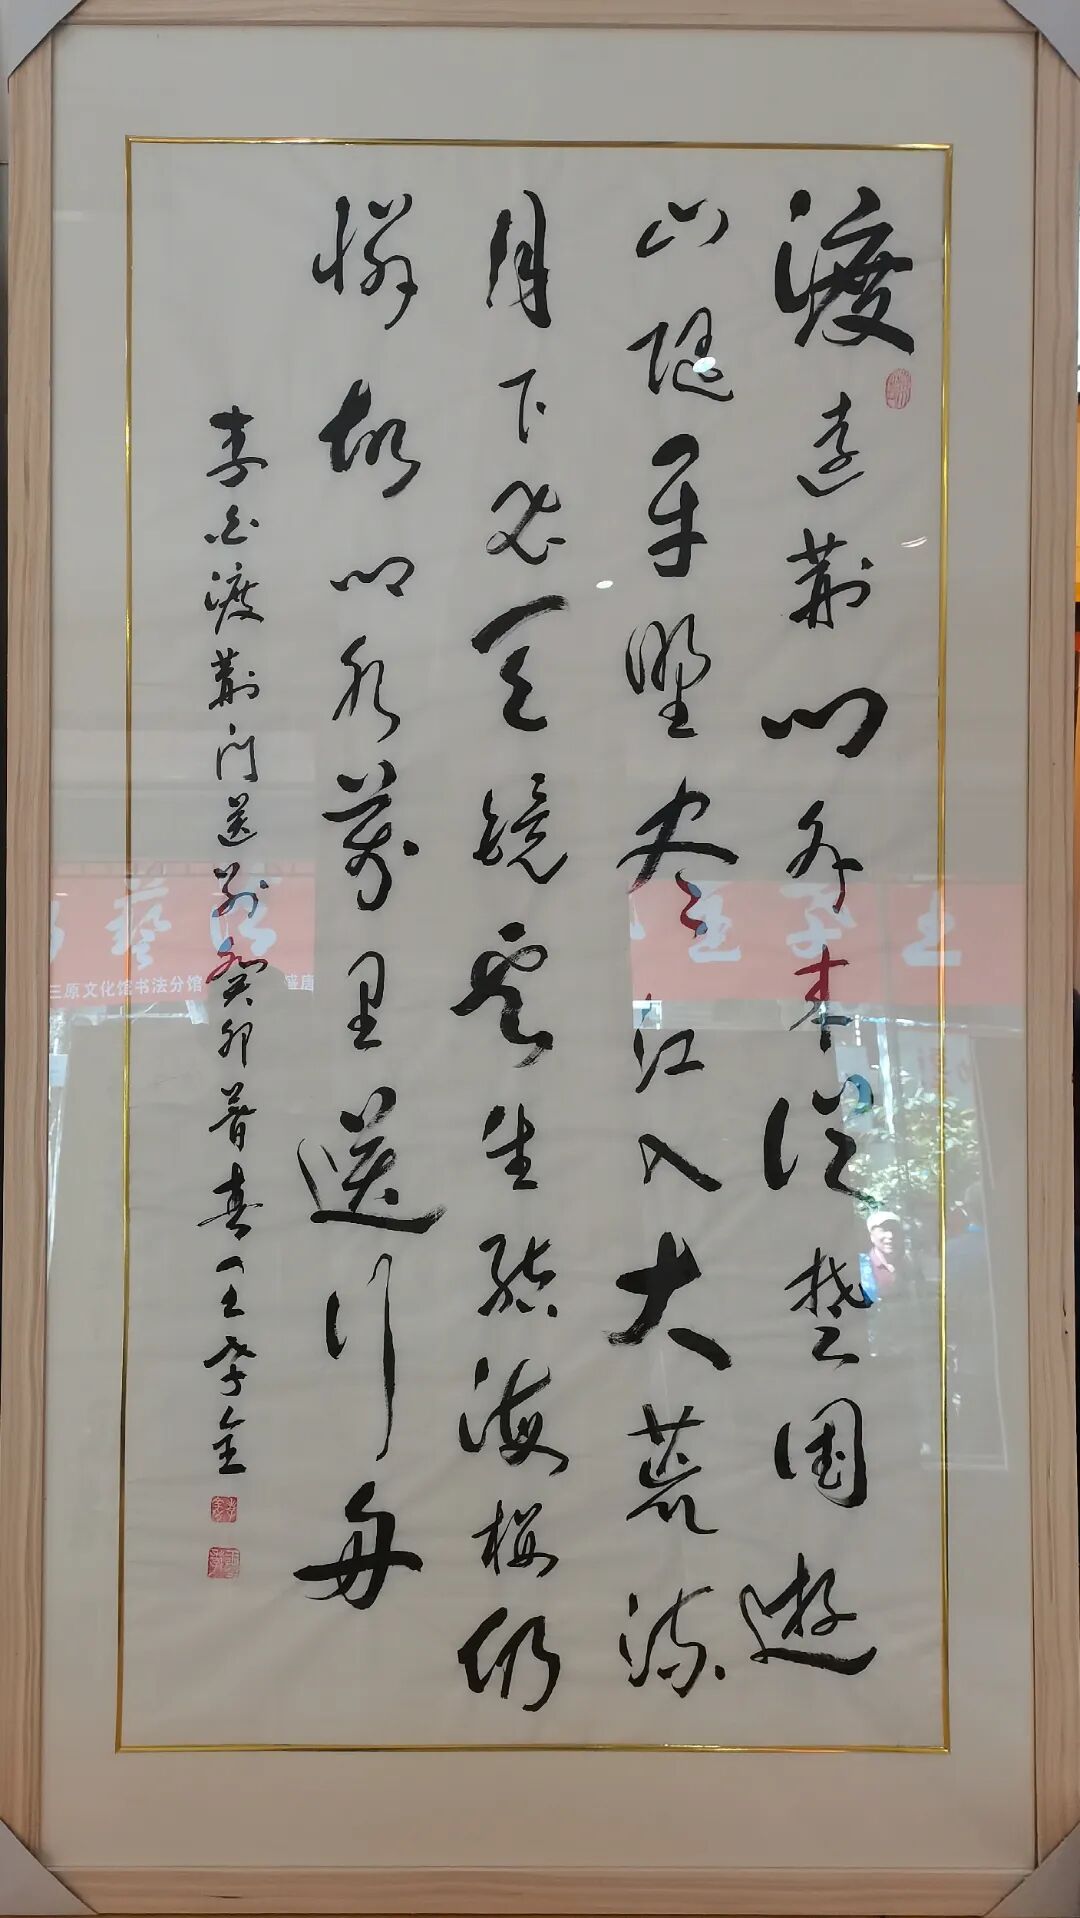 渡远荆门外来从楚国遊
山随平野尽江入大荒流
月下飞天镜云生结海楼仍
憐故乡水萬里送行舟
李白渡荆门送别癸卯暮春王孝金
三原文化馆书法分馆
盛唐